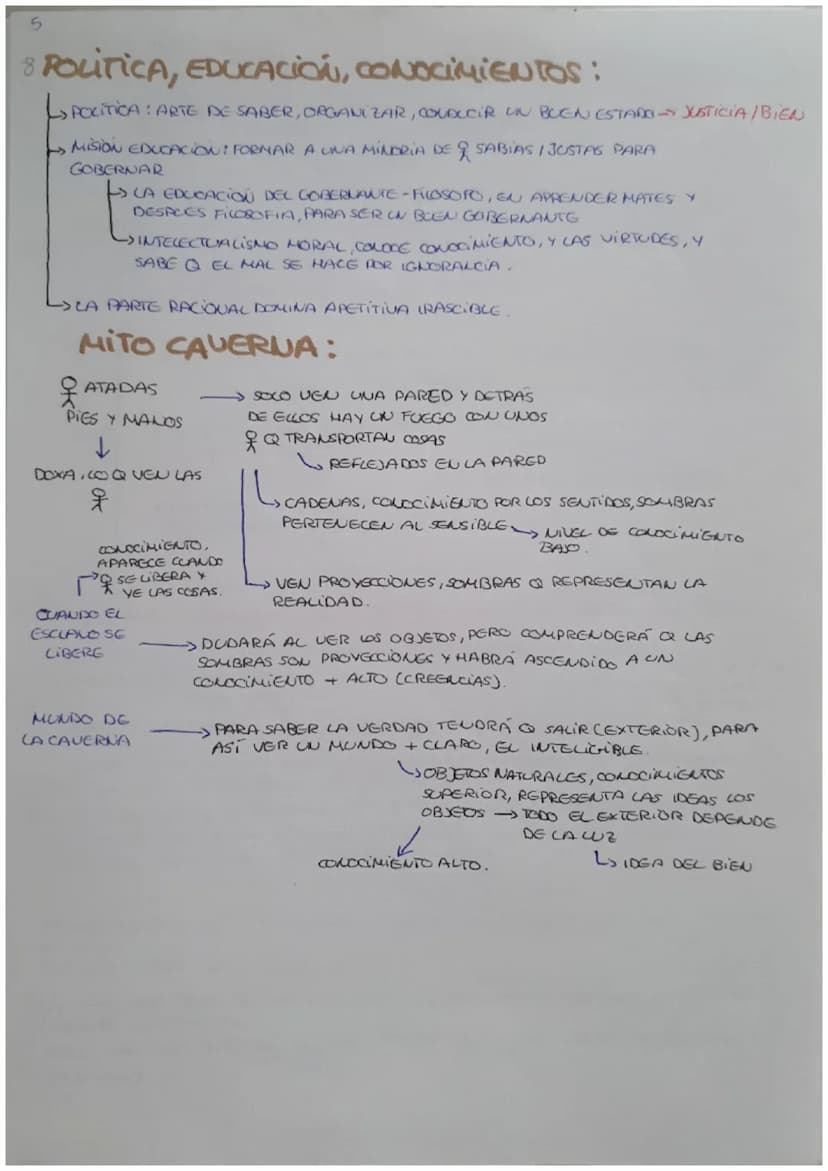 5
8 POLÍTICA, EDUCACIÓN, CONOCIMIENTOS:
POLÍTICA: ARTE DE SABER, ORGANIZAR, CONDUCIR UN BUEN ESTADO → JUSTICIA / BIEN
MISIÓN EDUCACIÓN: FORMAR A UNA MINORIA DE SABIAS / JUSTAS PARA
GOBERNAR
LA EDUCACIÓN DEL GOBERNANTE-FILOSOFO, EN APRENDER MATES Y
DESPUES FILOSOFIA, PARA SER UN BUEN GOBERNANTE
INTELECTUALISMO MORAL, CONOCE CONOCIMIENTO, Y LAS VIRTUDES, Y
SABE Q EL MAL SE HACE POR IGNORANCIA.
LA PARTE RACIONAL DOMINA APETITIVA IRASCIBLE.
MITO CAVERNA:
ATADAS
PIES Y MANOS
→ SOLO VEN UNA PARED Y DETRÁS
DE ELLOS HAY UN FUEGO CON UNOS
Q TRANSPORTAN COSAS
REFLEJADOS EN LA PARED
DOXA, LO Q VEN LAS
CADENAS, CONOCIMIENTO POR LOS SENTIDOS, SOMBRAS
PERTENECEN AL SENSIBLE → NIVEL DE CONOCIMIENTO
BAJO.
CONOCIMIENTO,
APARECE CUANDO
SE LIBERA Y
VE LAS COSAS.
VEN PROYECCIONES, SOMBRAS Q REPRESENTAN LA
REALIDAD.
CUANDO EL
ESCLAVO SE
LIBERE
→ DUDARÁ AL VER LOS OBJETOS, PERO COMPRENDERÁ Q LAS
SOMBRAS SON PROYECCIONES Y HABRÁ ASCENDIDO A UN
CONOCIMIENTO + ALTO (CREENCIAS).
MUNDO DE
LA CAVERNA
→ PARA SABER LA VERDAD TENDRÁ Q SALIR (EXTERIOR), PARA
ASÍ VER UN MUNDO + CLARO, EL INTELIGIBLE.
OBJETOS NATURALES, CONOCIMIENTOS
SUPERIOR, REPRESENTA LAS IDEAS LOS
OBJETOS → TODO EL EXTERIOR DEPENDE
DE LA LUZ
CONOCIMIENTO ALTO.
IDEA DEL BIEN